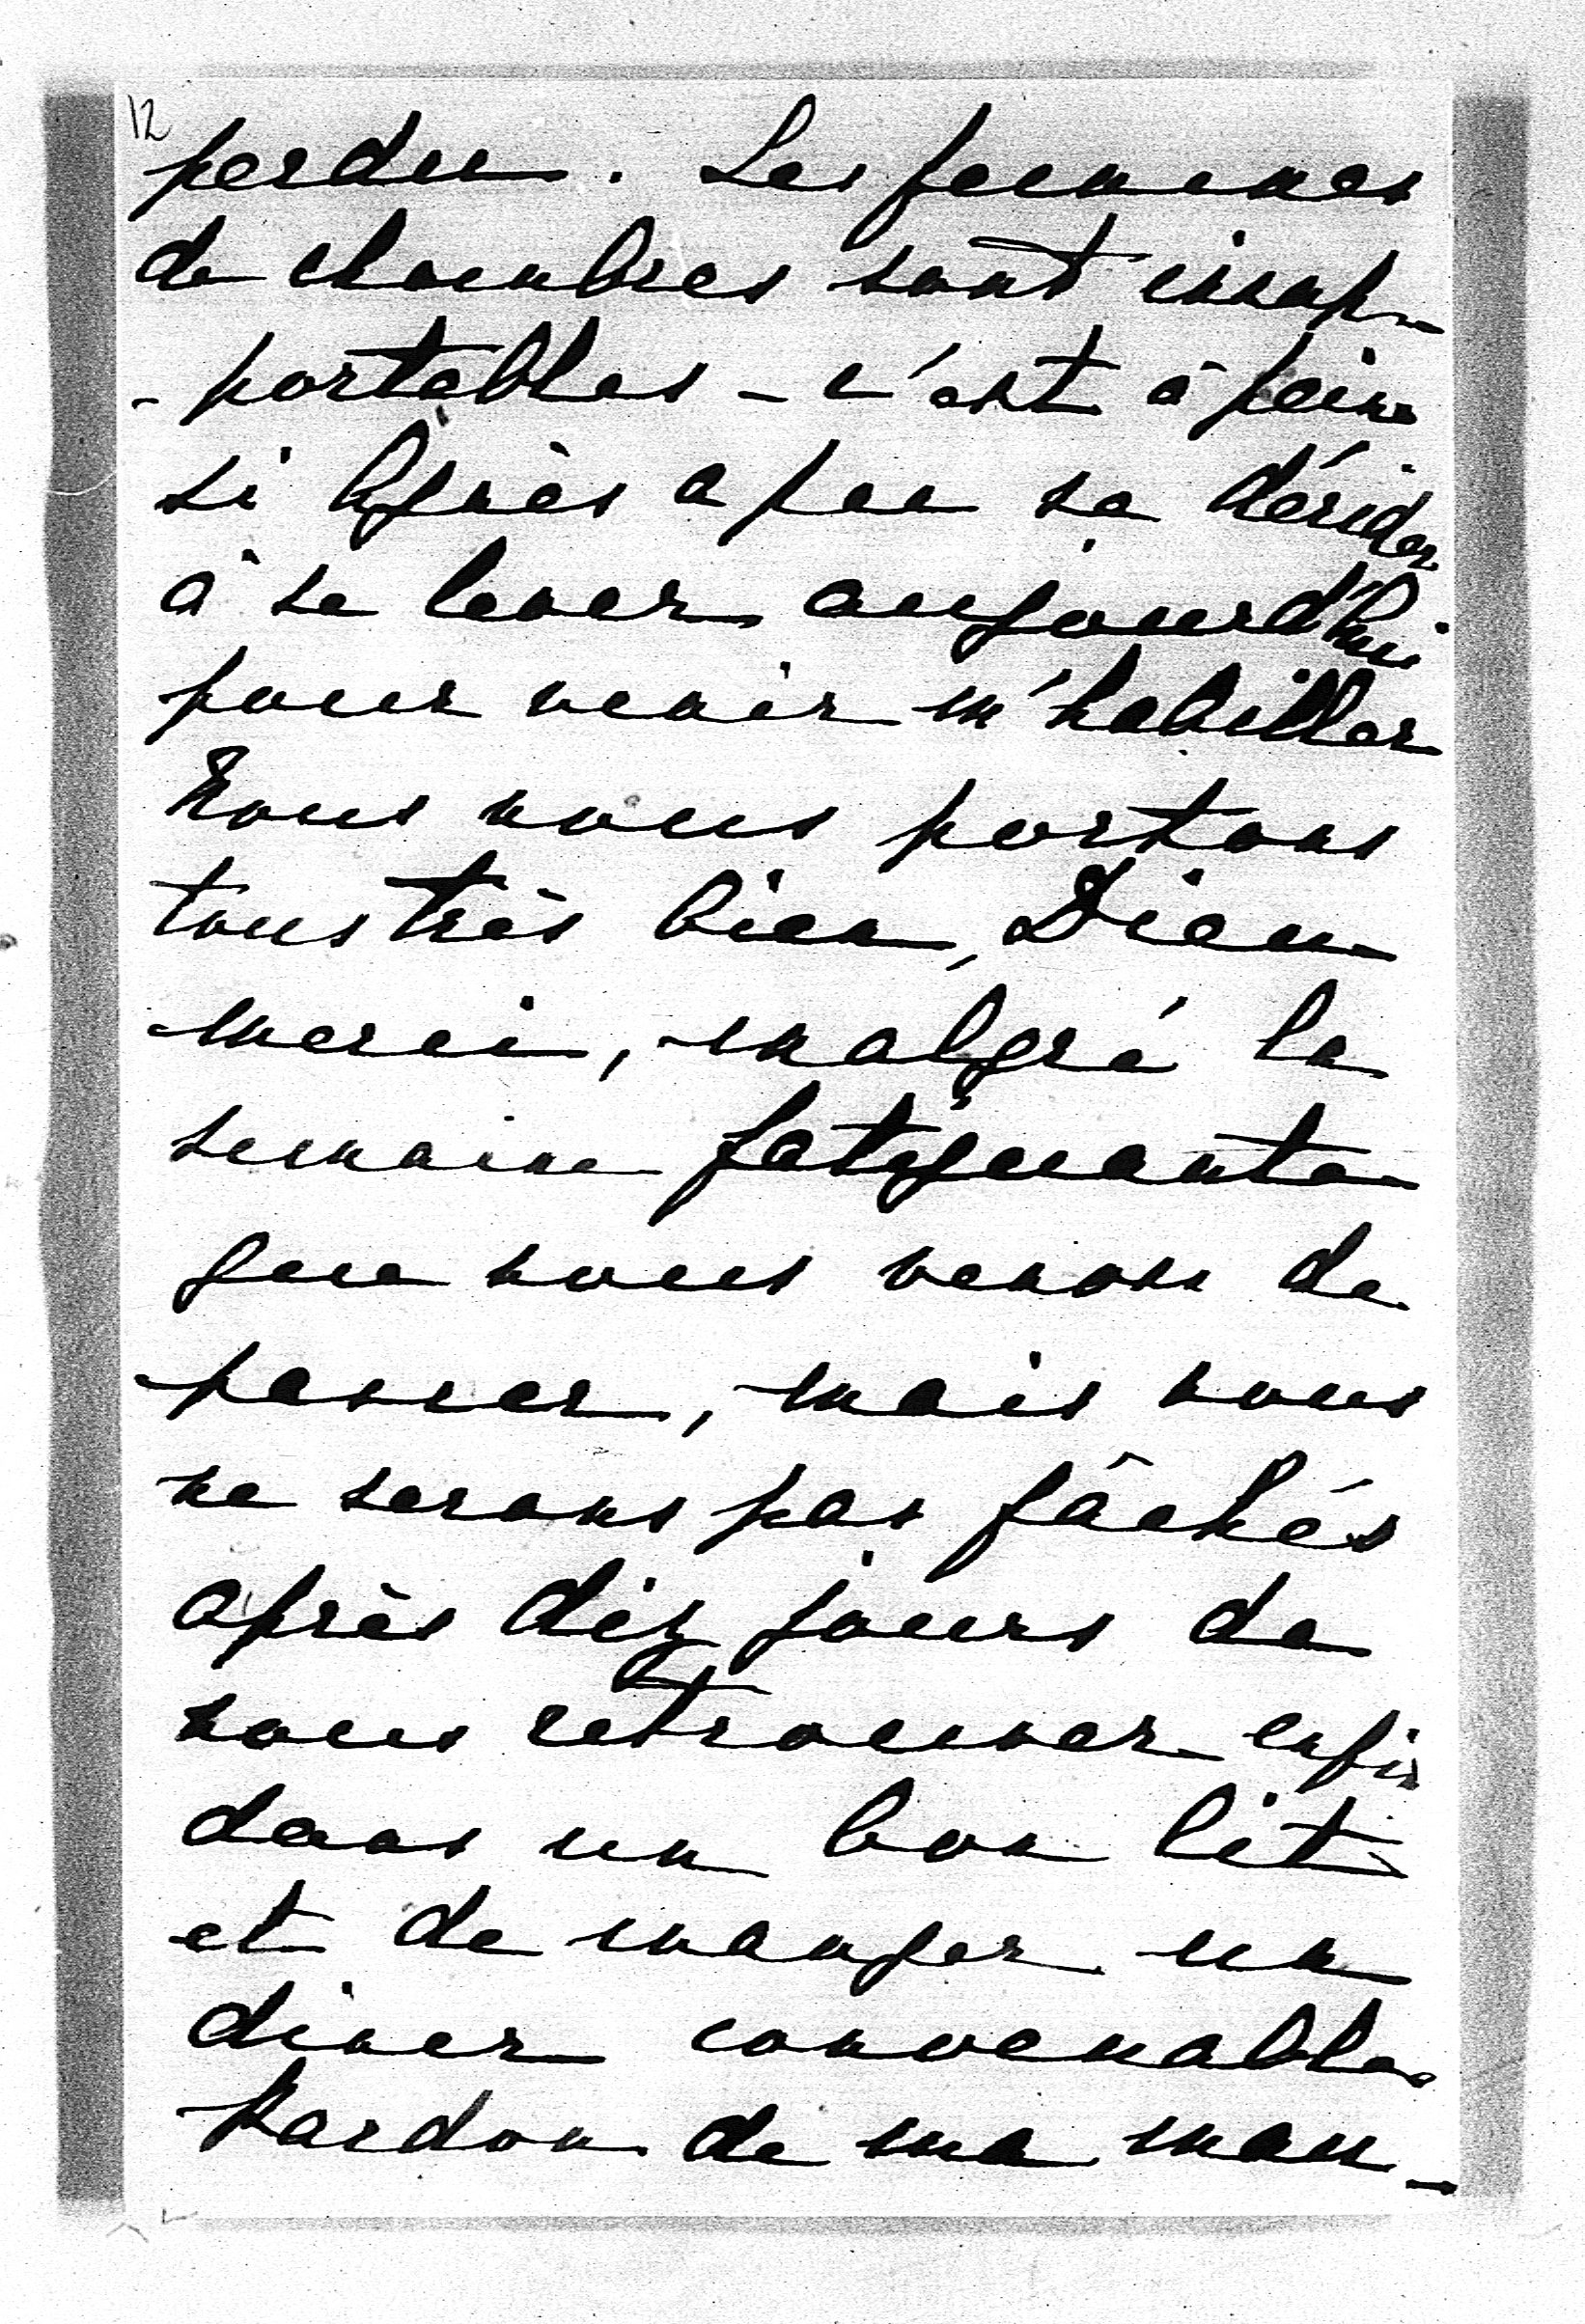 12
perdu. Les femmes
de chambres sont insup-
-portables - c'est à peine
si Agnès a pu se décider
à se lever aujourd'hui
pour venir m'habiller
Nous nous portons
tous très bien, Dieu
merci, malgré la
semaine fatiguante
que nous venons de
passer, mais nous
ne serons pas fâchés
après dix jours de
nous retrouver enfin
dans un bon lit
et de manger un
diner convenable.
Pardon de ma mau-